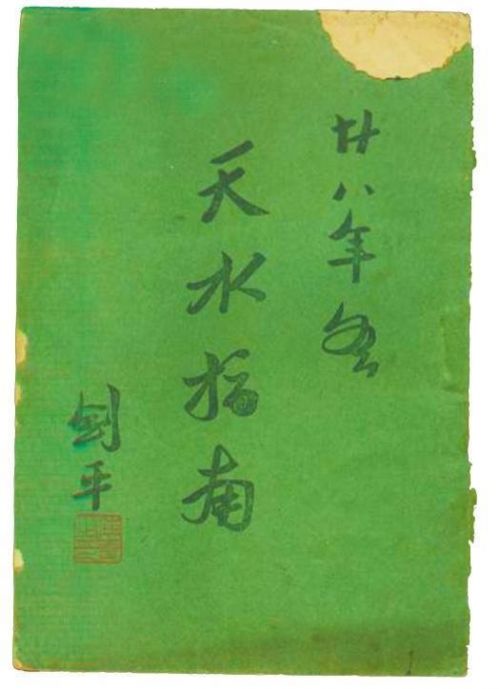 廿八年冬
天水指南
剑平